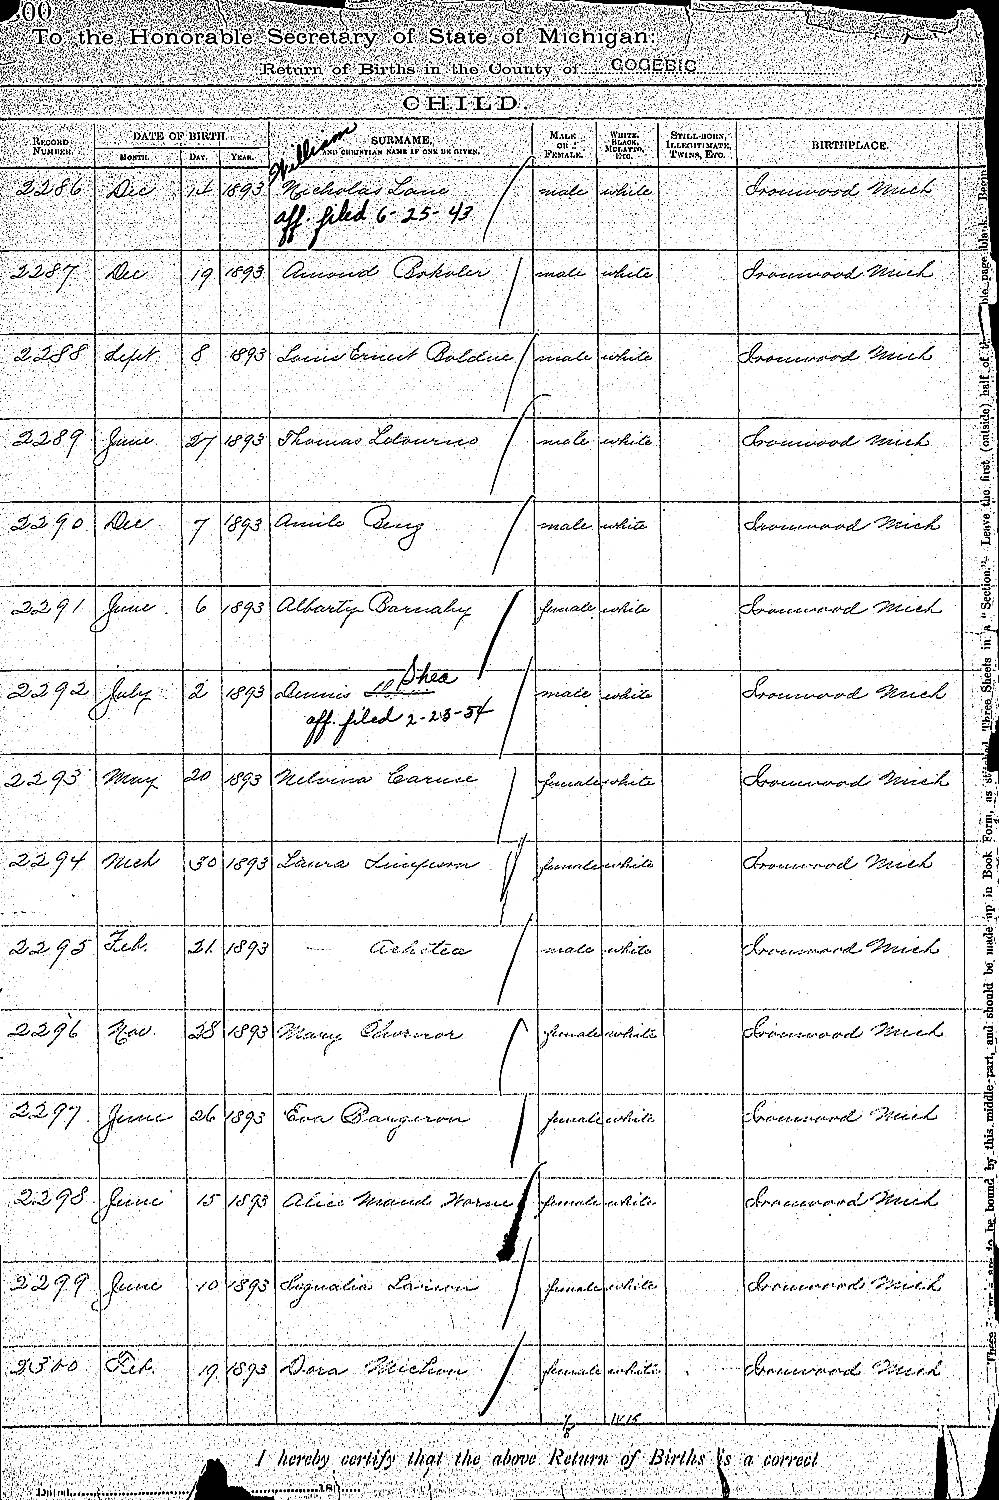 300
To the Honorable Secretary of State of Michigan:
Return of Births in the County of GOGEBIC
CHILD.
RECORD NUMBER. DATE OF BIRTH. MONTH. DAY. YEAR. SURNAME, AND CHRISTIAN NAME IF ONE BE GIVEN. MALE OR FEMALE. WHITE, BLACK, MULATTO, ETC. STILL-BORN, ILLEGITIMATE, TWINS, ETC. BIRTHPLACE.
William
2286 Dec 14 1893 Nicholas Lane male white Ironwood Mich
aff. filed 6-25-43
2287 Dec 19 1893 Amond male white Ironwood Mich
2288 Sept 8 1893 Louis Ernest Bolduc male white Ironwood Mich
2289 June 27 1893 Thomas Letourno male white Ironwood Mich
2290 Dec 7 1893 Amile Berg male white Ironwood Mich
2291 June 6 1893 Albarty Barnaby female white Ironwood Mich
Shea
2292 July 2 1893 Dennis male white Ironwood Mich
aff. filed 2-23-54
2293 May 20 1893 Nelvina Caruse female white Ironwood Mich
2294 Mch 30 1893 Laura Simpson female white Ironwood Mich
2295 Feb. 21 1893 — male white Ironwood Mich
2296 Nov. 28 1893 Mary female white Ironwood Mich
2297 June 26 1893 Eva Bargeron female white Ironwood Mich
2298 June 15 1893 Alice Maude Horne female white Ironwood Mich
2299 June 10 1893 Signalia Larson female white Ironwood Mich
2300 Feb. 19 1893 Dora Michon female white Ironwood Mich
I hereby certify that the above Return of Births is a correct
Dated 18